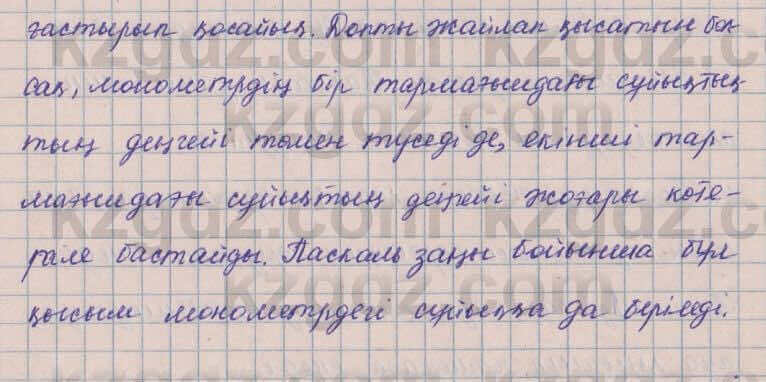 тастырып қосайық. Допты жайлап қысатын бол-
сақ, монометрдің бір тармағындағы сұйықтық-
тың деңгейі төмен түседі де, екінші тар-
мағындағы сұйықтың деңгейі жоғары көте-
ріле бастайды. Паскаль заңы бойынша бұл
қысым монометрдегі сұйыққа да беріледі.
kzgdz.com